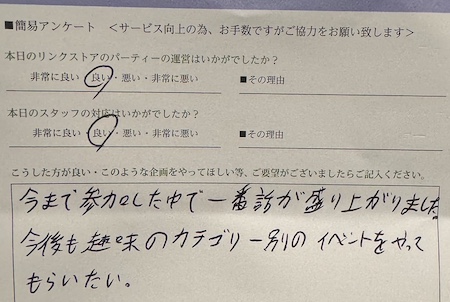 ■簡易アンケート ＜サービス向上の為、お手数ですがご協力をお願い致します＞
本日のリンクストアのパーティーの運営はいかがでしたか？
非常に良い・良い・悪い・非常に悪い ■その理由
本日のスタッフの対応はいかがでしたか？
非常に良い・良い・悪い・非常に悪い ■その理由
こうした方が良い・このような企画をやってほしい等、ご要望がございましたらご記入ください。
今まで参加した中で一番話が盛り上がりました。
今後も趣味のカテゴリー別のイベントをやって
もらいたい。